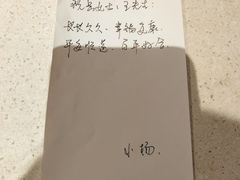 祝吕女士、王先生:
长长久久、幸福美满
平安顺遂、百年好合
小杨.